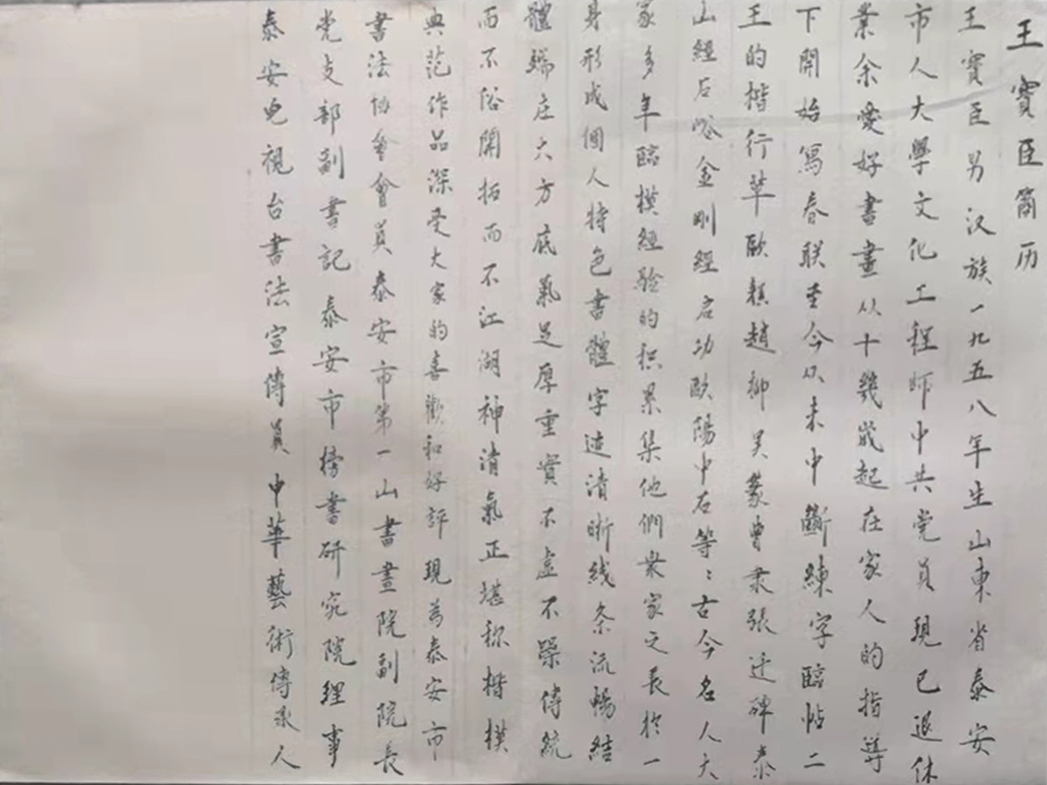 王寳臣简历
王寳臣男汉族一九五八年生山東省泰安
市人大學文化工程师中共党員現已退休
業余愛好書畫从十幾歲起在家人的指导
下開始寫春联至今从未中斷練字臨帖二
王的楷行草歐顏趙柳吴篆曹隶張迁碑泰
山經石峪金刚經启功歐陽中石等：古今名人大
家多年臨模經验的积累集他們衆家之長於一
身形成個人特色書體字迹清晰线条流暢結
體端庄大方底氣足厚重實不虚不躁傳統
而不俗開拓而不江湖神清氣正堪称楷模
典范作品深受大家的喜歡和好評現為泰安市
書法协會會員泰安市第一山書畫院副院長
党支部副書記泰安市榜書研究院理事
泰安电視台書法宣傳員中華藝術傳承人